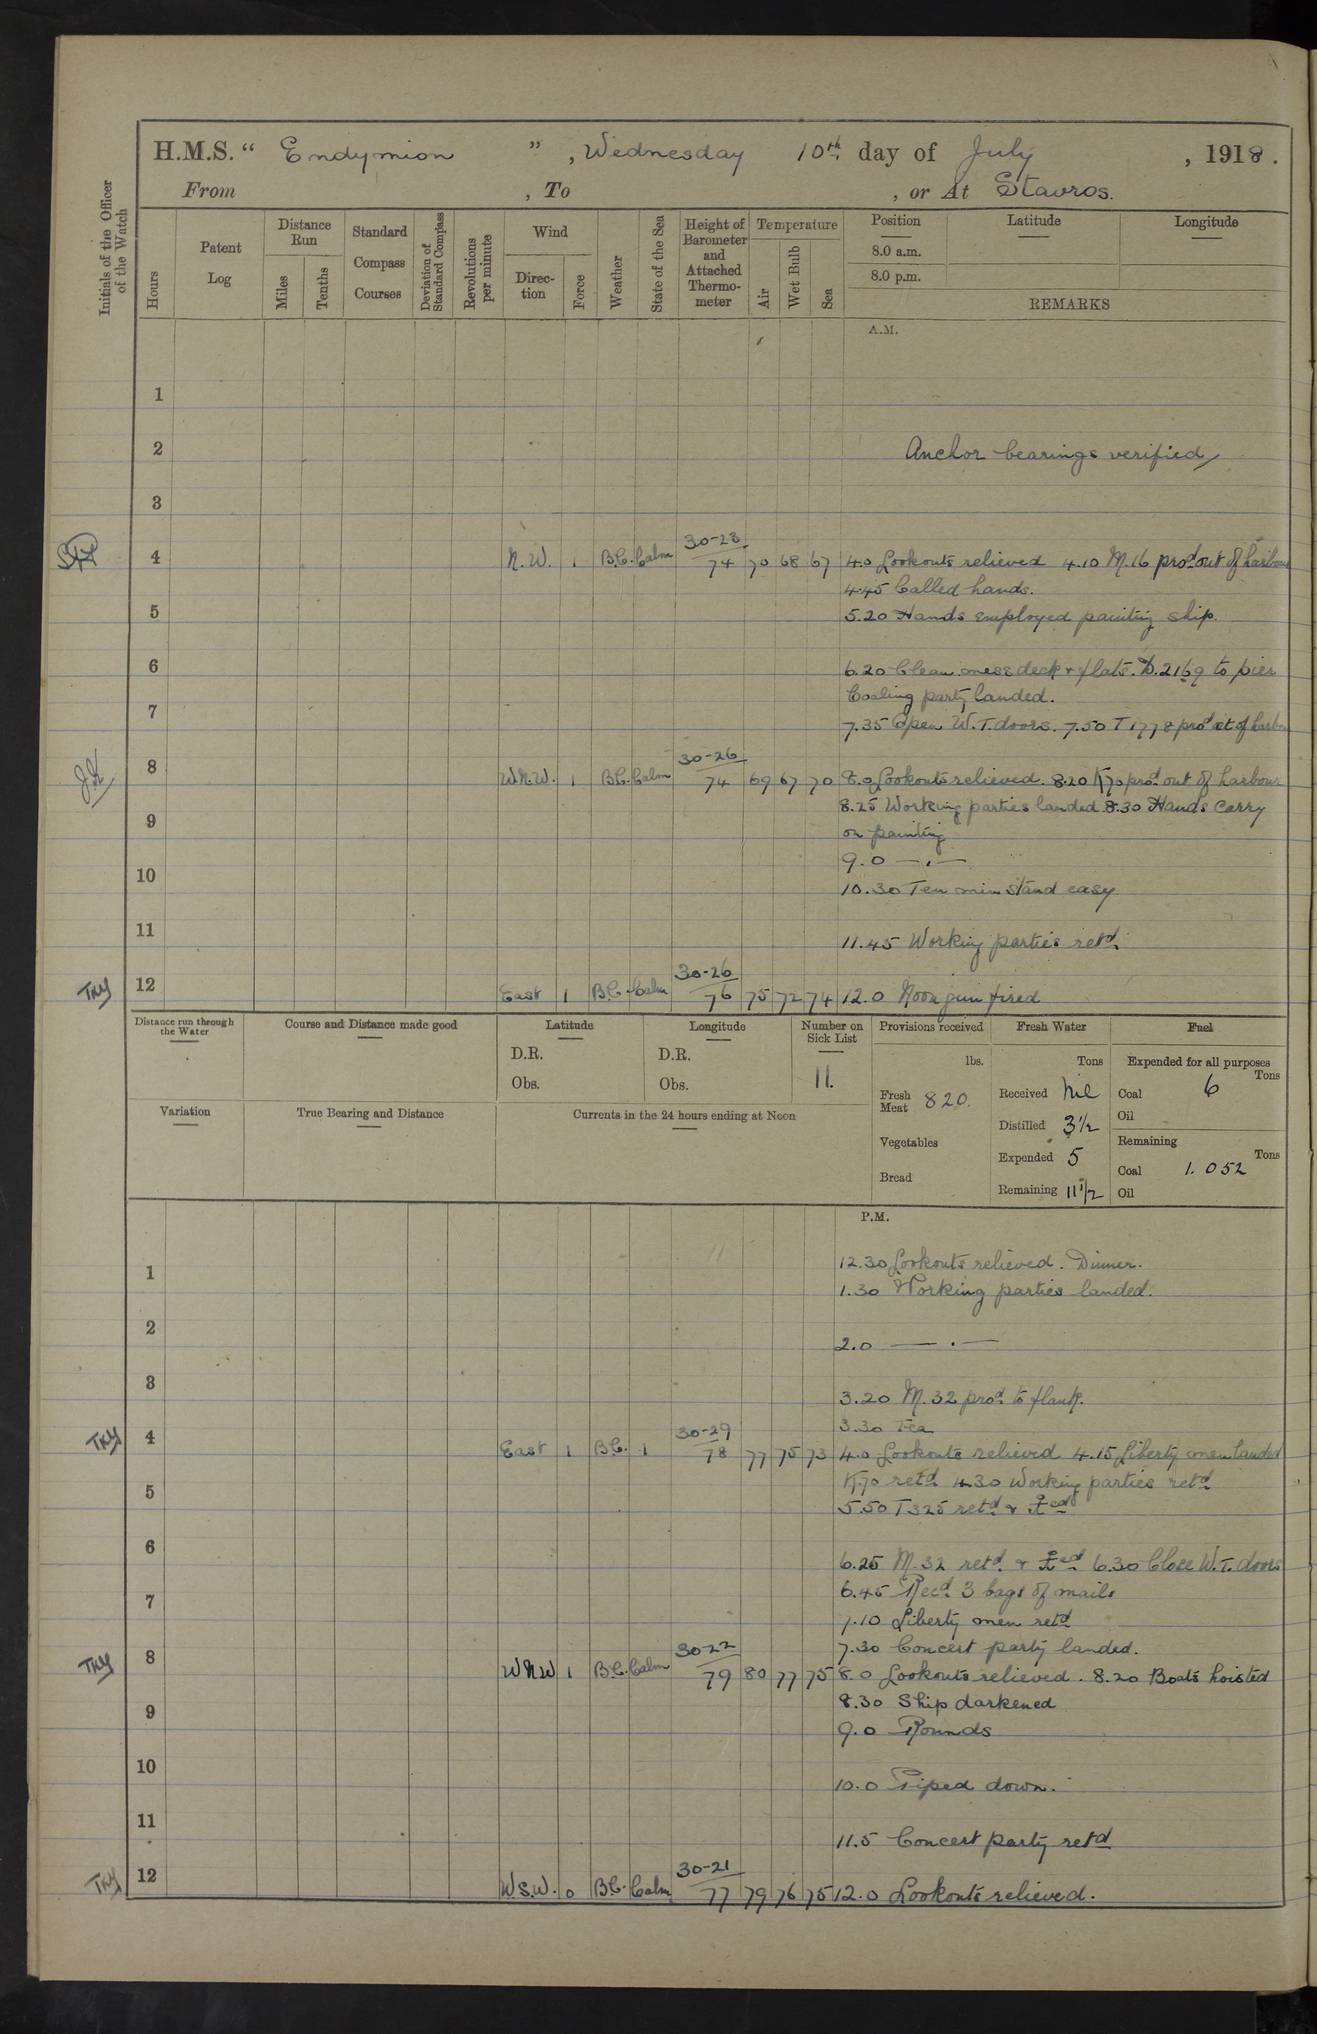 H.M.S. “ Endymion ” , Wednesday 10th day of July , 1918 .
From , To , or At Stavros.
Initials of the Officer of the Watch
Hours
Patent Log
Distance Run
Miles
Tenths
Standard Compass Courses
Deviation of Standard Compass
Revolutions per minute
Wind
Direc-tion
Force
Weather
State of the Sea
Height of Barometer and Attached Thermo-meter
Temperature
Air
Wet Bulb
Sea
Position
8.0 a.m.
8.0 p.m.
Latitude
Longitude
REMARKS
A.M.
1
2 Anchor bearings verified
3
30-23
4 N.W. 1 B.C. Calm 74 70 68 67 4.0 Lookouts relieved 4.10 M.16 procd out of harbour
4.45 Called hands.
5 5.20 Hands employed painting ship.
6 6.20 Clean mess deck & flats. D.2169 to pier
Coaling party landed.
7 7.35 Open W.T. doors. 7.50 T 1778 procd out of harbour
30-26
8 W.N.W. 1 B.C. Calm 74 69 67 70 8.0 Lookouts relieved. 8.20 K70 procd out of harbour
8.25 Working parties landed 8.30 Hands carry
9 on painting
9.0 — . —
10 10.30 Ten min stand easy
11 11.45 Working parties retd.
30-26
TKY 12 East 1 B.C. Calm 76 75 72 74 12.0 Noon gun fired
Distance run through the Water
Course and Distance made good
Latitude
D.R.
Obs.
Longitude
D.R.
Obs.
Number on Sick List
11.
Provisions received
lbs.
Fresh Meat 820.
Vegetables
Bread
Fresh Water
Tons
Received Nil
Distilled 3½
Expended 5
Remaining 11½
Fuel
Expended for all purposes
Tons
Coal 6
Oil
Remaining
Tons
Coal 1.052
Oil
Variation
True Bearing and Distance
Currents in the 24 hours ending at Noon
P.M.
12.30 Lookouts relieved. Dinner.
1 1.30 Working parties landed.
2 2.0 — . —
3 3.20 M.32 procd. to flank.
30-29 3.30 Tea
TKY 4 East 1 B.C. 1 78 77 75 73 4.0 Lookouts relieved 4.15 Liberty men landed
K70 retd 4.30 Working parties retd.
5 5.50 T325 retd &
6 6.25 M.32 retd. & 6.30 Close W.T. doors
6.45 Recd. 3 bags of mails
7 7.10 Liberty men retd
30-22 7.30 Concert party landed.
TKY 8 W N W 1 B.C. Calm 79 80 77 75 8.0 Lookouts relieved. 8.20 Boats hoisted
8.30 Ship darkened
9 9.0 Rounds
10 10.0 Piped down.
11 11.5 Concert party retd
30-21
TKY 12 W S.W. 0 B.C. Calm 77 79 76 75 12.0 Lookouts relieved.